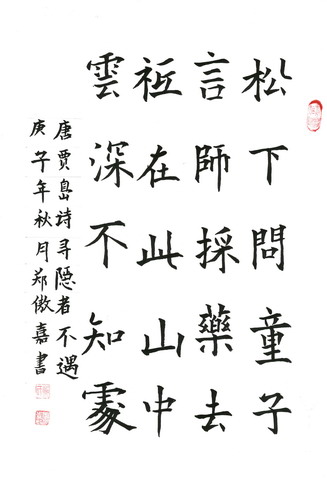 松下問童子
言師採藥去
祗在此山中
雲深不知處
唐贾島詩寻隐者不遇
庚子年秋月郑傲嘉書